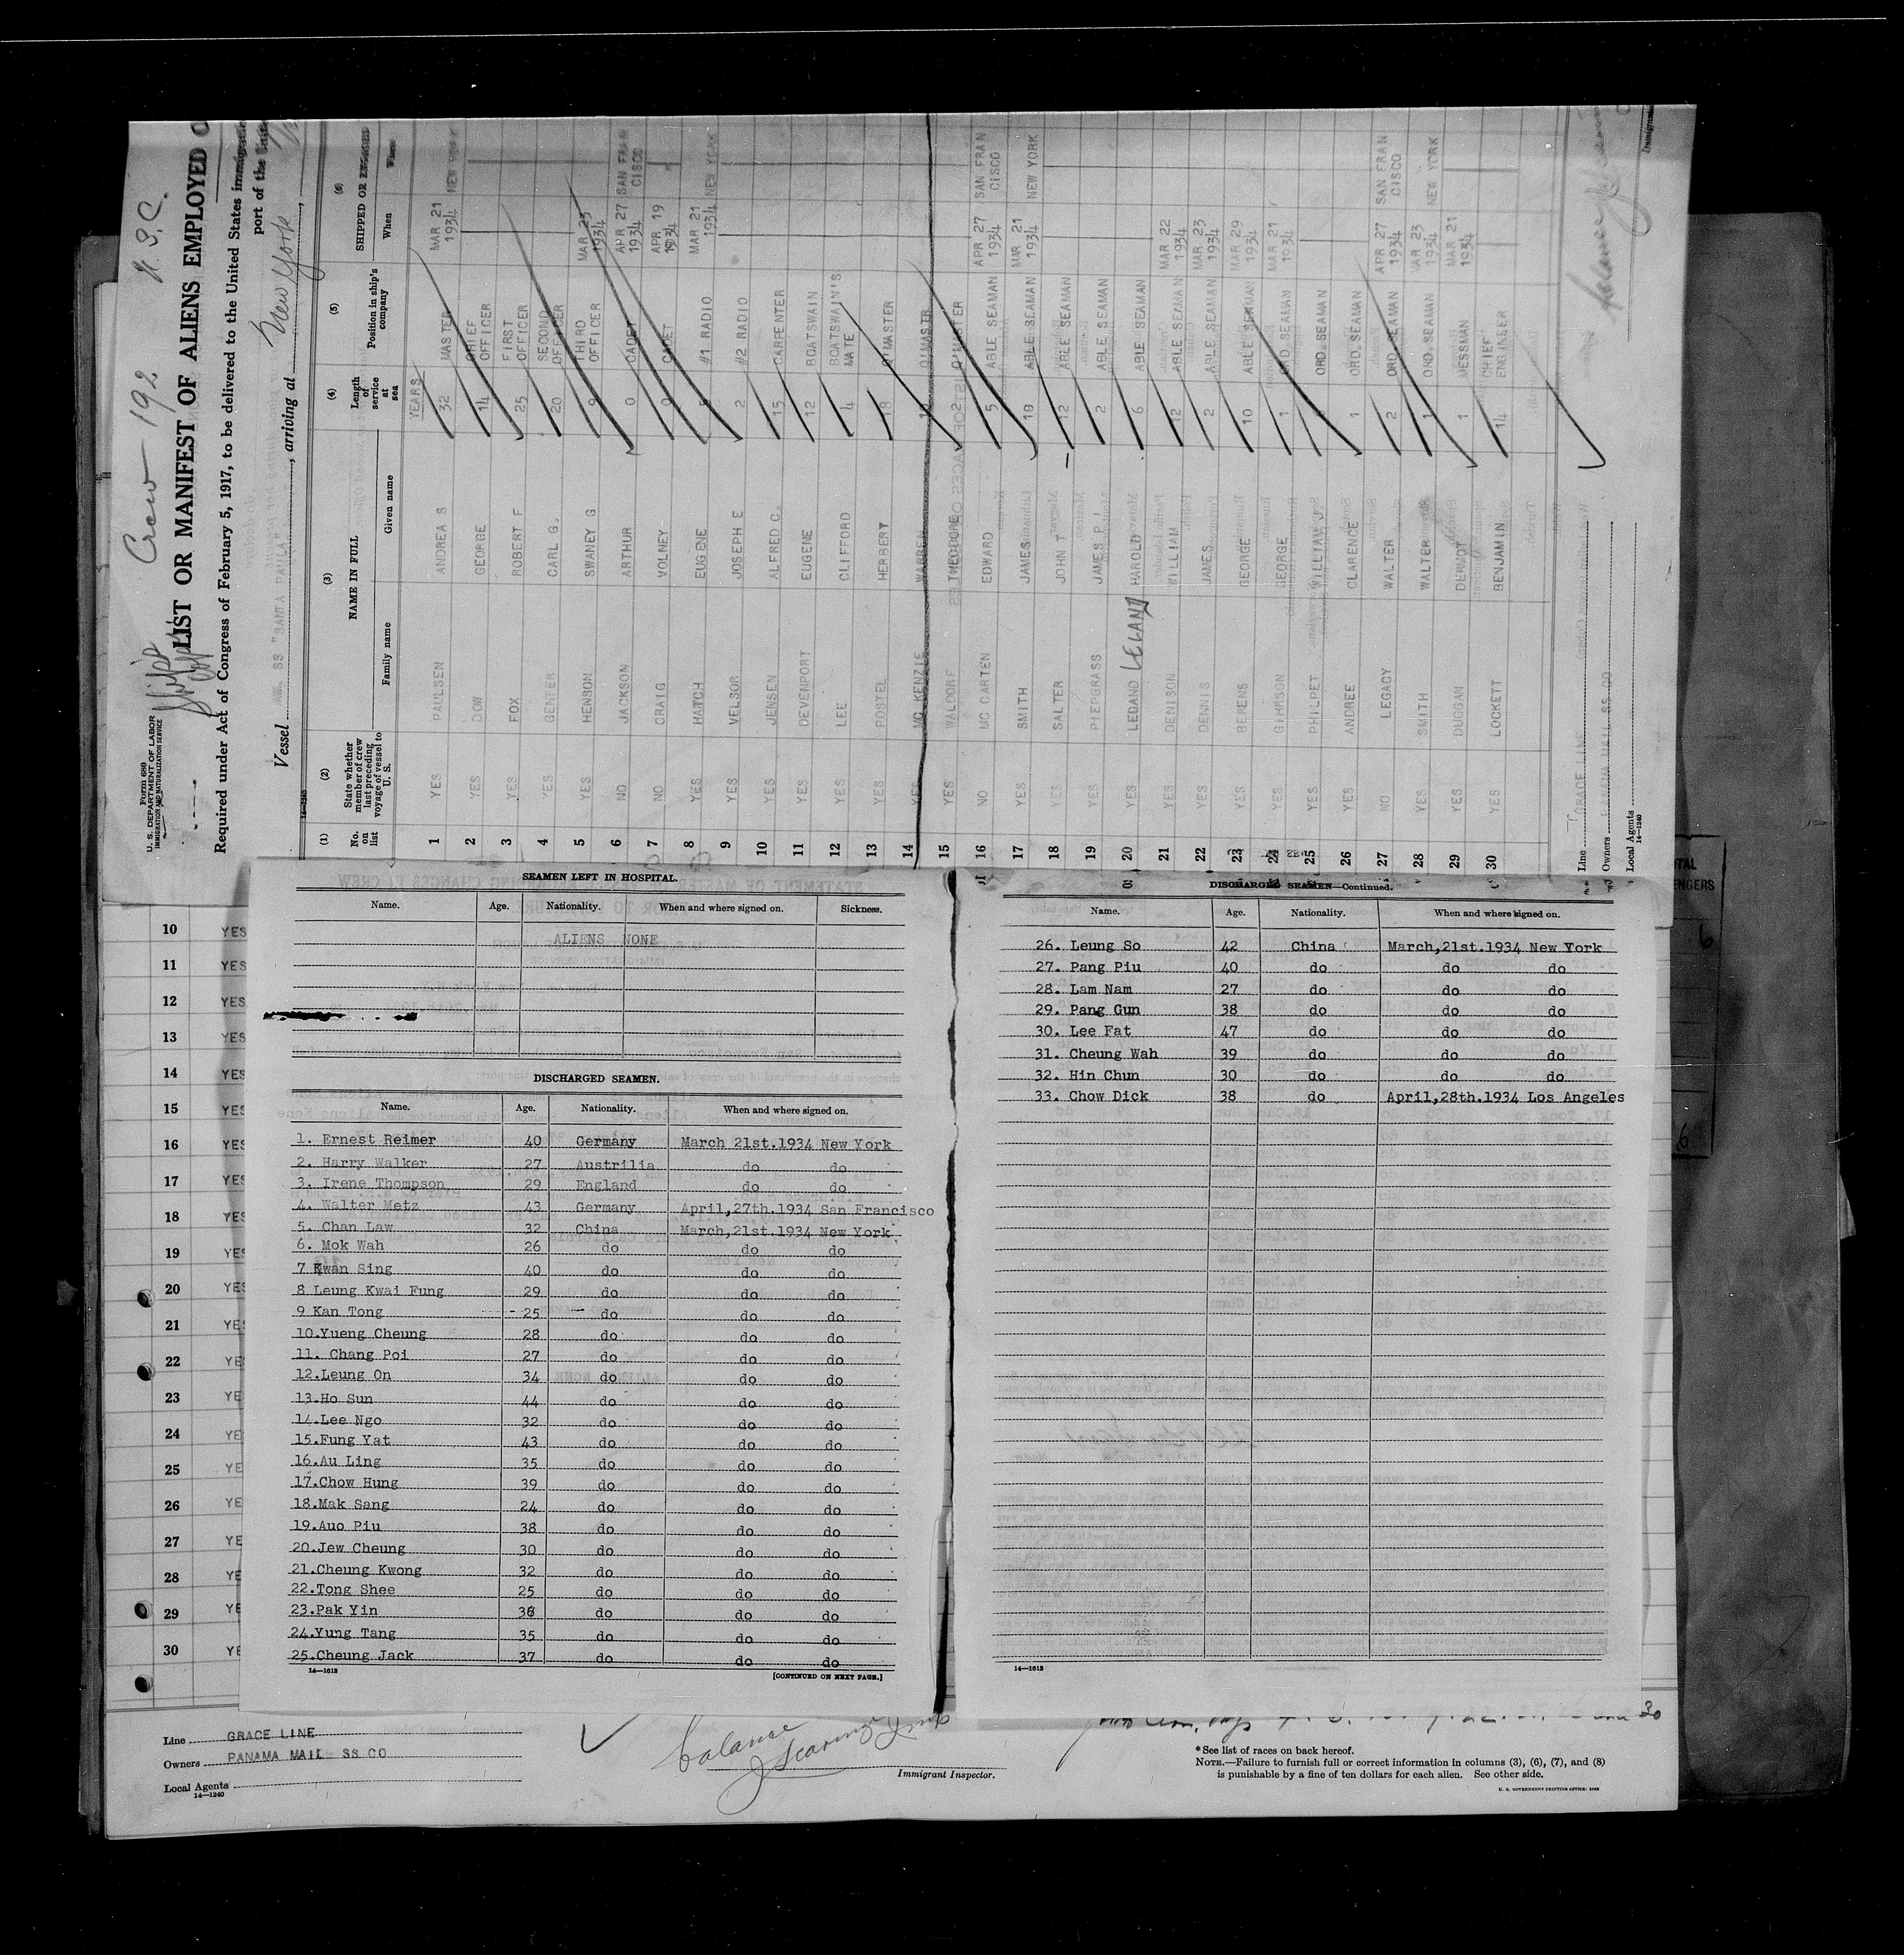 Crew 192 U.S.C.
Form 680
U. S. DEPARTMENT OF LABOR
IMMIGRATION AND NATURALIZATION SERVICE
LIST OR MANIFEST OF ALIENS EMPLOYED
Required under Act of Congress of February 5, 1917, to be delivered to the United States
port of the
Vessel SS "SANTA PAULA", arriving at New York,
14—1240
(1) (2) (3) (4) (5) (6)
No. on list State whether member of crew last preceding voyage of vessel to U. S. NAME IN FULL Length of service at sea Position in ship's company SHIPPED OR
Family name Given name When Where
YEARS
1 YES PAULSEN ANDREA S 32 MASTER MAR 21 1934 NEW YORK
2 YES DOW GEORGE 14 CHIEF OFFICER
3 YES FOX ROBERT F 25 FIRST OFFICER
4 YES GENTER CARL G. 20 SECOND OFFICER
5 YES HENSON SWANEY G 9 THIRD OFFICER MAR 23 1934
6 NO JACKSON ARTHUR 0 CADET APR 27 1934 SAN FRAN CISCO
7 NO CRAIG VOLNEY 0 CADET APR 19 1934
8 YES HATCH EUGENE 5 #1 RADIO MAR 21 1934 NEW YORK
9 YES VELSOR JOSEPH E 2 #2 RADIO
10 YES JENSEN ALFRED C. 15 CARPENTER
11 YES DEVENPORT EUGENE 12 BOATSWAIN
12 YES LEE CLIFFORD 4 BOATSWAIN'S MATE
13 YES POSTEL HERBERT 18 Q'MASTER
14 YES MC KENZIE WARREN Q'MASTER
15 YES WALDORF THEODORE 2 Q'MASTER
16 NO MC CARTEN EDWARD 5 ABLE SEAMAN APR 27 1934 SAN FRAN CISCO
17 YES SMITH JAMES 19 ABLE SEAMAN MAR 21 1934 NEW YORK
18 YES SALTER JOHN T 12 ABLE SEAMAN
19 YES PIEPGRASS JAMES P I 2 ABLE SEAMAN
20 YES LEGAND LELAND HAROLD 6 ABLE SEAMAN
21 YES DENISON WILLIAM 12 ABLE SEAMAN MAR 22 1934
22 YES DENNIS JAMES 2 ABLE SEAMAN MAR 23 1934
23 YES BERENS GEORGE 10 ABLE SEAMAN MAR 29 1934
24 YES GIHRSON GEORGE 1 ORD.SEAMAN MAR 21 1934
25 YES PHILPET WILLIAM J ORD.SEAMAN
26 YES ANDREE CLARENCE 1 ORD.SEAMAN
27 NO LEGACY WALTER 2 ORD.SEAMAN APR 27 1934 SAN FRAN CISCO
28 YES SMITH WALTER 1 ORD.SEAMAN MAR 23 1934 NEW YORK
29 YES DUGGAN DERMOT 1 MESSMAN MAR 21 1934
30 YES LOCKETT BENJAMIN 14 CHIEF ENGINEER
Line GRACE LINE
Owners PANAMA MAIL SS CO
Local Agents
14—1240
SEAMEN LEFT IN HOSPITAL.
Name. Age. Nationality. When and where signed on. Sickness.
ALIENS NONE
DISCHARGED SEAMEN.
Name. Age. Nationality. When and where signed on.
1. Ernest Reimer 40 Germany March 21st.1934 New York
2. Harry Walker 27 Austrilia do do
3. Irene Thompson 29 England do do
4. Walter Metz 43 Germany April,27th.1934 San Francisco
5. Chan Law 32 China March,21st.1934 New York
6. Mok Wah 26 do do do
7 Kwan Sing 40 do do do
8 Leung Kwai Fung 29 do do do
9 Kan Tong 25 do do do
10.Yueng Cheung 28 do do do
11. Chang Poi 27 do do do
12.Leung On 34 do do do
13.Ho Sun 44 do do do
14.Lee Ngo 32 do do do
15.Fung Yat 43 do do do
16.Au Ling 35 do do do
17.Chow Hung 39 do do do
18.Mak Sang 24 do do do
19.Auo Piu 38 do do do
20.Jew Cheung 30 do do do
21.Cheung Kwong 32 do do do
22.Tong Shee 25 do do do
23.Pak Yin 36 do do do
24.Yung Tang 35 do do do
25.Cheung Jack 37 do do do
14—1613
[CONTINUED ON NEXT PAGE.]
DISCHARGED SEAMEN—Continued.
Name. Age. Nationality. When and where signed on.
26. Leung So 42 China March,21st.1934 New York
27. Pang Piu 40 do do do
28. Lam Nam 27 do do do
29. Pang Gun 38 do do do
30. Lee Fat 47 do do do
31. Cheung Wah 39 do do do
32. Hin Chun 30 do do do
33. Chow Dick 38 do April,28th.1934 Los Angeles
14—1613
10 YES
11 YES
12 YES
13 YES
14 YES
15 YES
16 YES
17 YES
18 YES
19 YES
20 YES
21 YE
22 YE
23 YE
24 YE
25 YE
26 YE
27 YE
28 YE
29 YE
30 YE
Line GRACE LINE
Owners PANAMA MAIL SS CO
Local Agents
14—1240
balance
Immigrant Inspector.
30
*See list of races on back hereof.
NOTE.—Failure to furnish full or correct information in columns (3), (6), (7), and (8)
is punishable by a fine of ten dollars for each alien. See other side.
U. S. GOVERNMENT PRINTING OFFICE: 1933
6
6